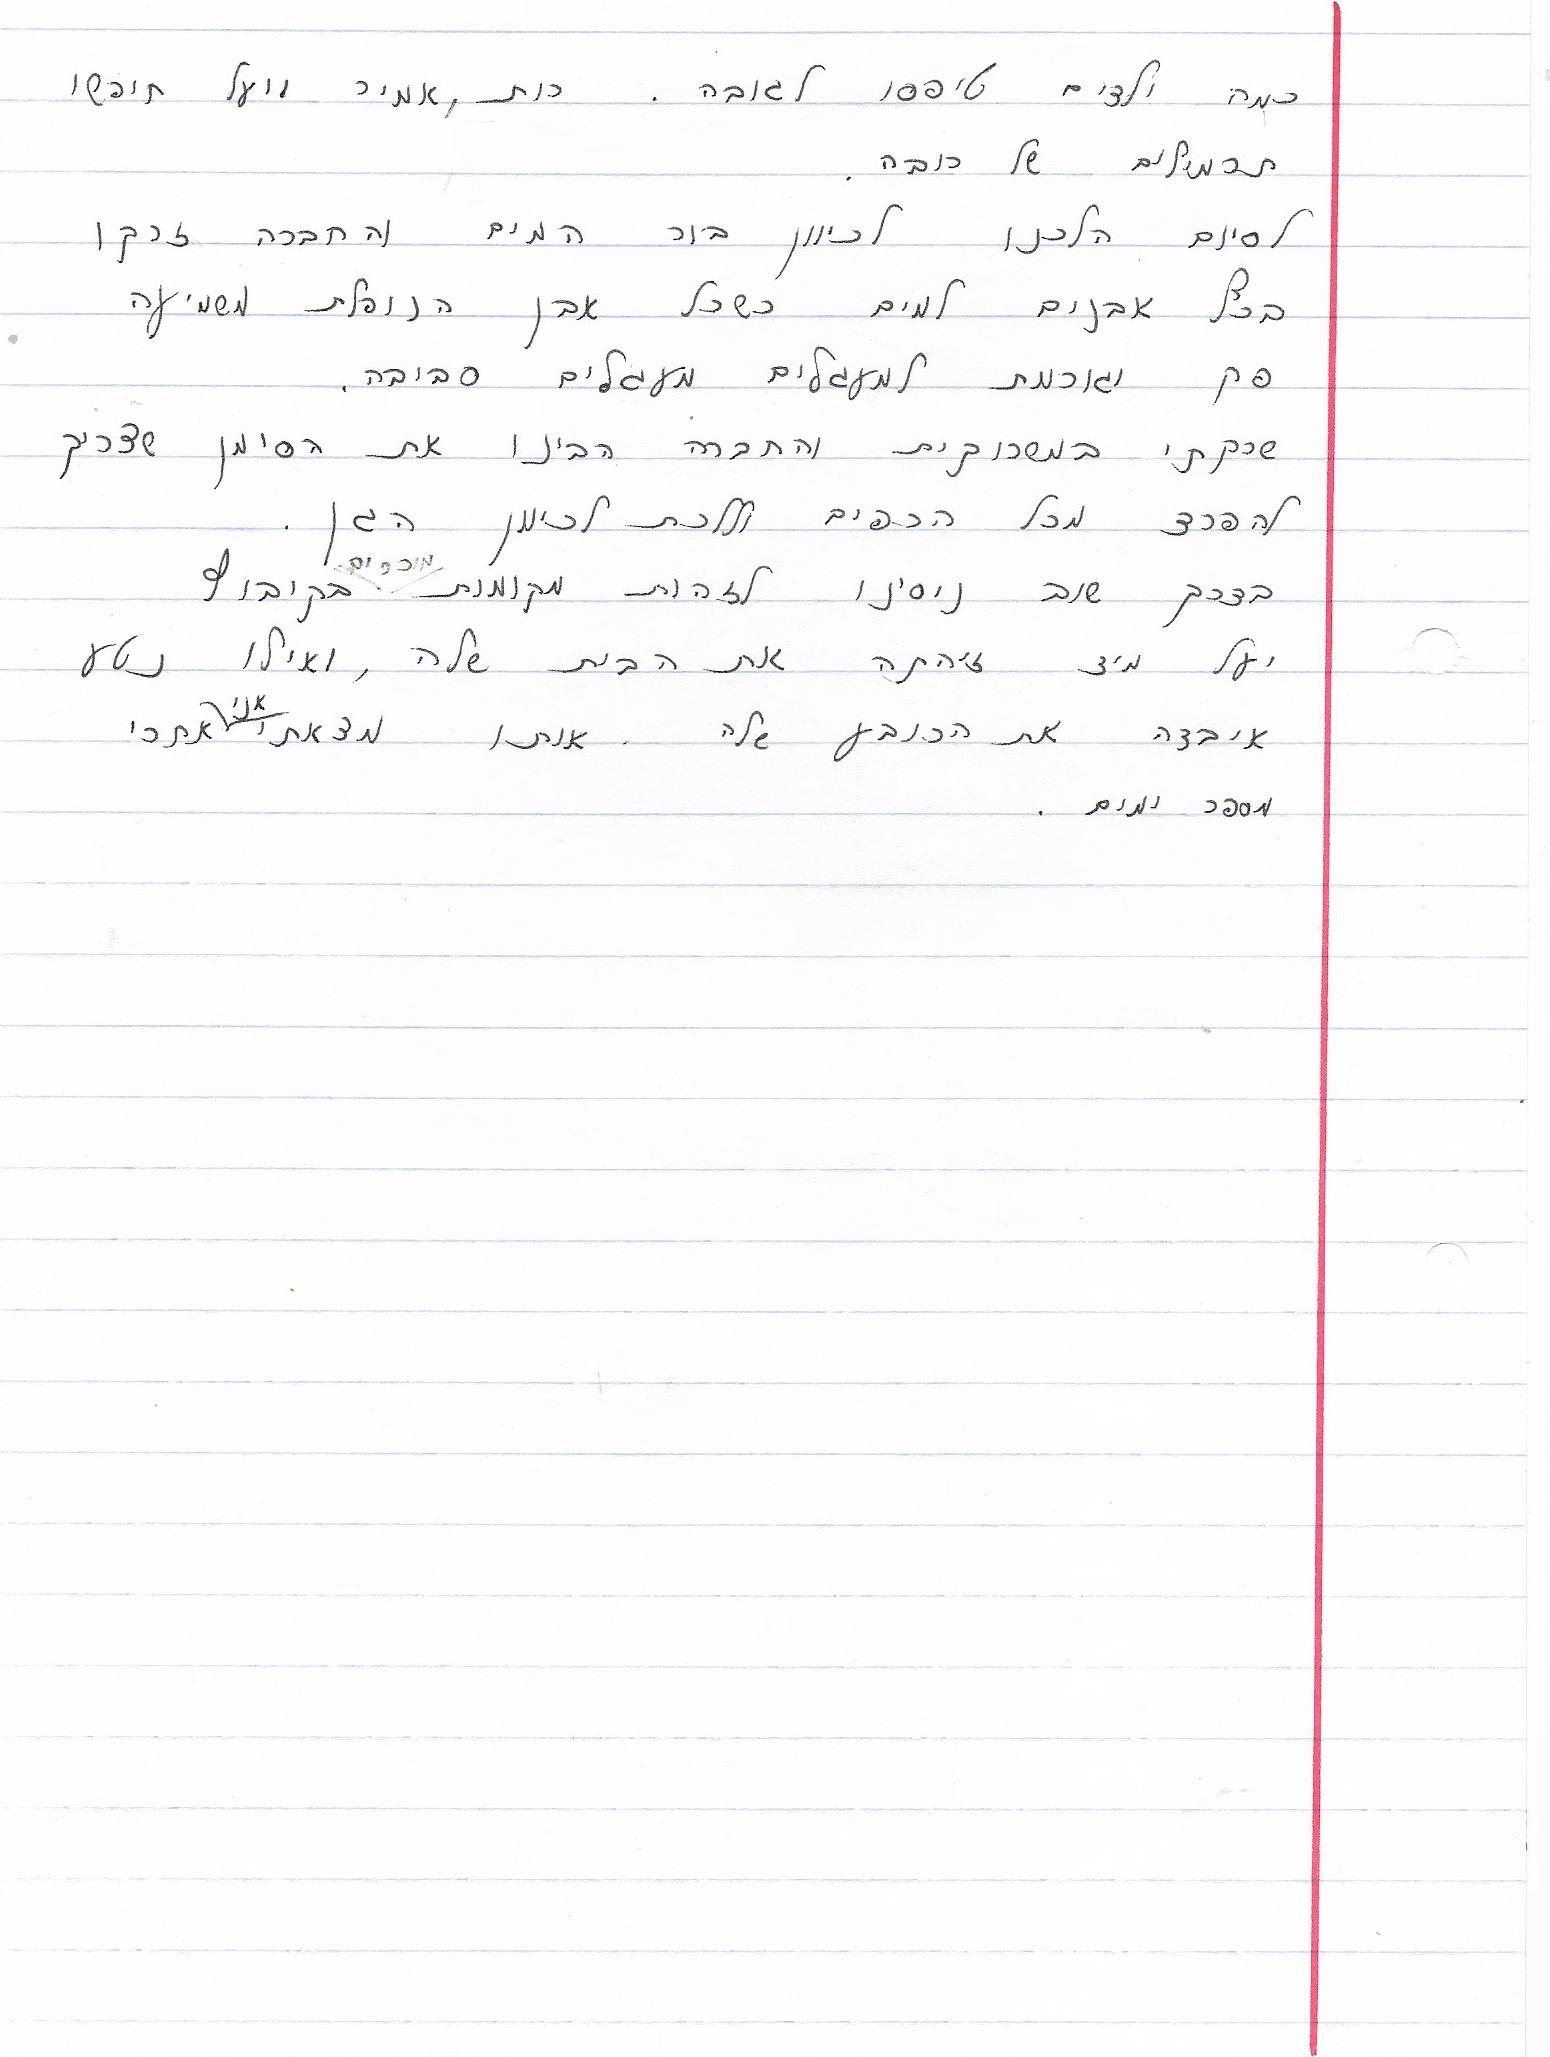 כמה ילדים טיפסו לגובה. רות, אמיר ויעל חיפשו
תרמילים של רובה.
לסיום הלכנו לכיוון בור המים והחברה זרקו
בצל אבנים למים כשכל אבן הנופלת משמיעה
פק וגורמת למעגלים מעגלים סביבה.
שרקתי במשרוקית והחברה הבינו את הסימן שצריך
להפרד מכל הכפים וללכת לכיוון הגן.
בדרך שוב ניסינו לזהות מקומות מוכרים בקיבוץ
יעל מיד זיהתה את הבית שלה, ואילו נטע
איבדה את הכובע שלה. אותו מצאתי אני אחרי
מספר ימים.